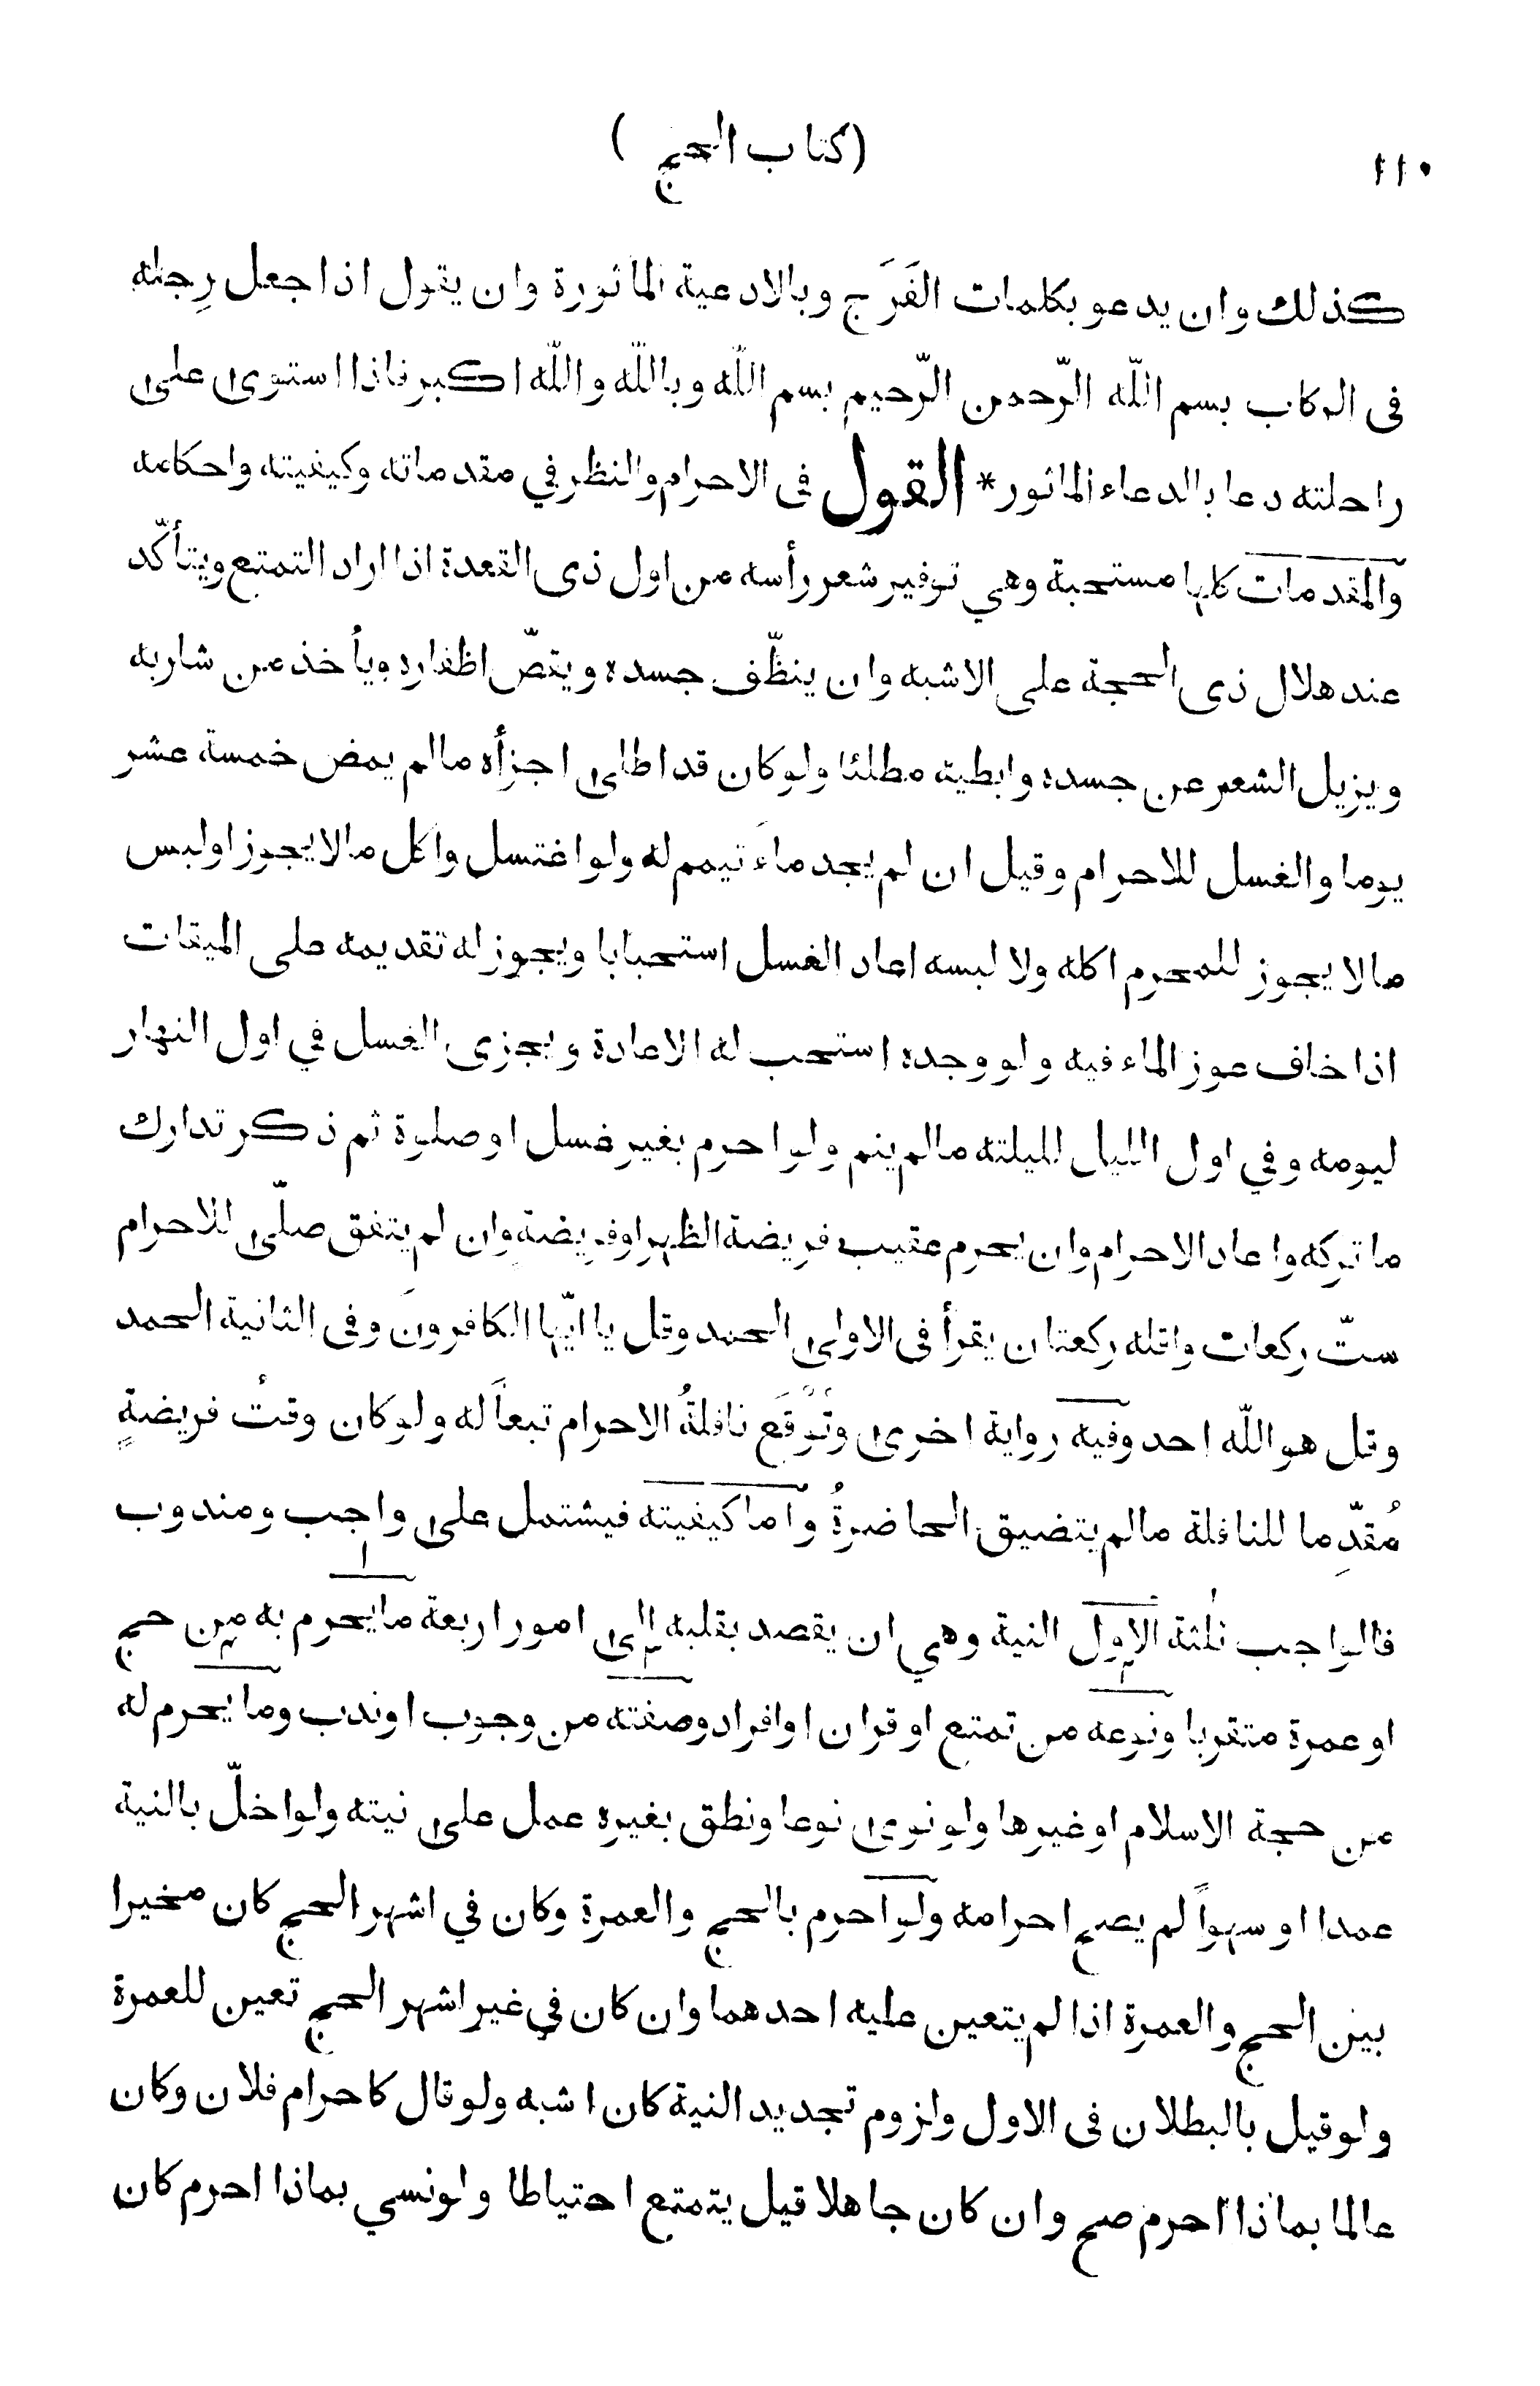 ١١٠
(كتاب الحج)
كذلك وان يدعو بكلمات الفَرَج وبالادعية المأثورة وان يقول اذا جعل رِجله
فى الركاب بسم اللّه الرّحمن الرّحيم بسم اللّه وباللّه واللّه اكبر فاذا استوى على
راحلته دعا بالدعاء المأثور * القول فى الاحرام والنظر في مقدماته وكيفيته واحكامه
والمقدمات كلها مستحبة وهي توفير شعر رأسه من اول ذى القعدة اذا اراد التمتع ويتأكّد
عند هلال ذى الحجة على الاشبه وان ينظّف جسده ويقصّ اظفاره ويأخذ من شاربه
ويزيل الشعر عن جسده وابطيه مطلئا ولو كان قد اطلى اجزأه مالم يمض خمسة عشر
يوما والغسل للاحرام وقيل ان لم يجد ماءً تيمم له ولو اغتسل واكل مالا يجوز او لبس
مالا يجوز للمحرم اكله ولا لبسه اعاد الغسل استحبابا ويجوز له تقديمه على الميقات
اذا خاف عوز الماء فيه ولو وجده استحب له الاعادة ويجزى الغسل في اول النهار
ليومه وفي اول الليل لليلته مالم ينم ولو احرم بغير غسل او صلوة ثم ذكر تدارك
ما تركه واعاد الاحرام وان يحرم عقيب فريضة الظهر او فريضةٍ وان لم يتفق صلّى للاحرام
ستّ ركعات واقله ركعتان يقرأ فى الاولى الحمد وقل يا ايّها الكافرونَ وفى الثانية الحمد
وقل هو اللّه احد وفيه رواية اخرى وتُوْقَع نافلةُ الاحرام تبعاً له ولو كان وقتُ فريضةٍ
مُقدِّما للنافلة مالم يتضيق الحاضرةُ وأما كيفيته فيشتمل على واجب ومندوب
فالواجب ثلثة الاول النية وهي ان يقصد بقلبه الى امور اربعة ما يحرم به من حج
او عمرة متقربا ونوعه من تمتع او قران او افراد وصفته من وجوب او ندب وما يحرم له
من حجة الاسلام او غيرها ولو نوى نوعا ونطق بغيره عمل على نيته ولو اخلّ بالنية
عمدا او سهواً لم يصح احرامه ولو احرم بالحج والعمرة وكان في اشهر الحج كان مخيرا
بين الحج والعمرة اذا لم يتعين عليه احدهما وان كان في غير اشهر الحج تعين للعمرة
ولو قيل بالبطلان فى الاول ولزوم تجديد النية كان اشبه ولو قال كاحرام فلان وكان
عالما بماذا احرم صح وان كان جاهلا قيل يتمتع احتياطا ولو نسي بماذا احرم كان